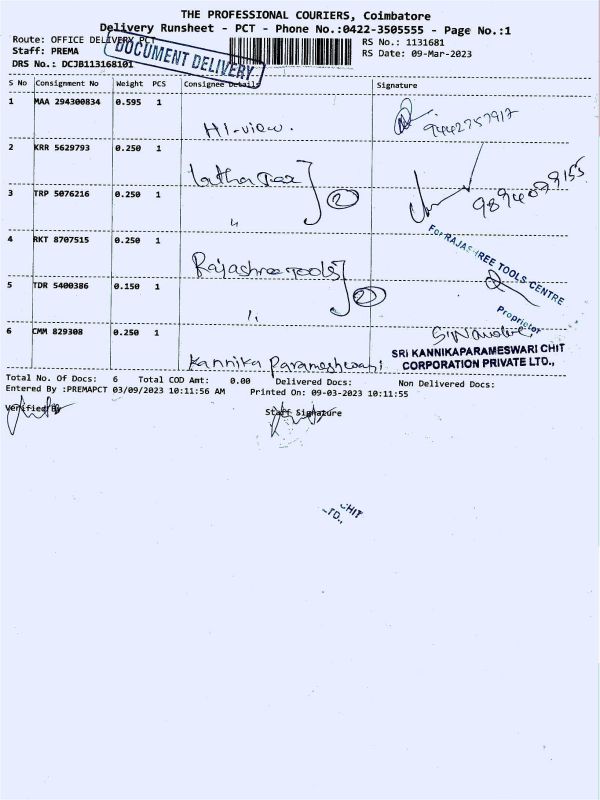 THE PROFESSIONAL COURIERS, Coimbatore
Delivery Runsheet - PCT - Phone No.:0422-3505555 - Page No.:1
Route: OFFICE DELIVERY PCT
RS No.: 1131681
Staff: PREMA
RS Date: 09-Mar-2023
DRS No.: DCJB113168101
DOCUMENT DELIVERY
S No Consignment No Weight PCS Consignee Details Signature
1 MAA 294300834 0.595 1
HI-view. 9442757917
2 KRR 5629793 0.250 1
3 TRP 5076216 0.250 1
" 2
4 RKT 8707515 0.250 1
For RAJASHREE TOOLS CENTRE
Rajashree Tools
5 TDR 5400386 0.150 1
" 2
Proprietor
6 CMM 829308 0.250 1
Kannika Parameshwari
SRI KANNIKAPARAMESWARI CHIT
CORPORATION PRIVATE LTD.,
Total No. Of Docs: 6 Total COD Amt: 0.00 Delivered Docs: Non Delivered Docs:
Entered By :PREMAPCT 03/09/2023 10:11:56 AM Printed On: 09-03-2023 10:11:55
Verified By Staff Signature
CHIT
LTD.,